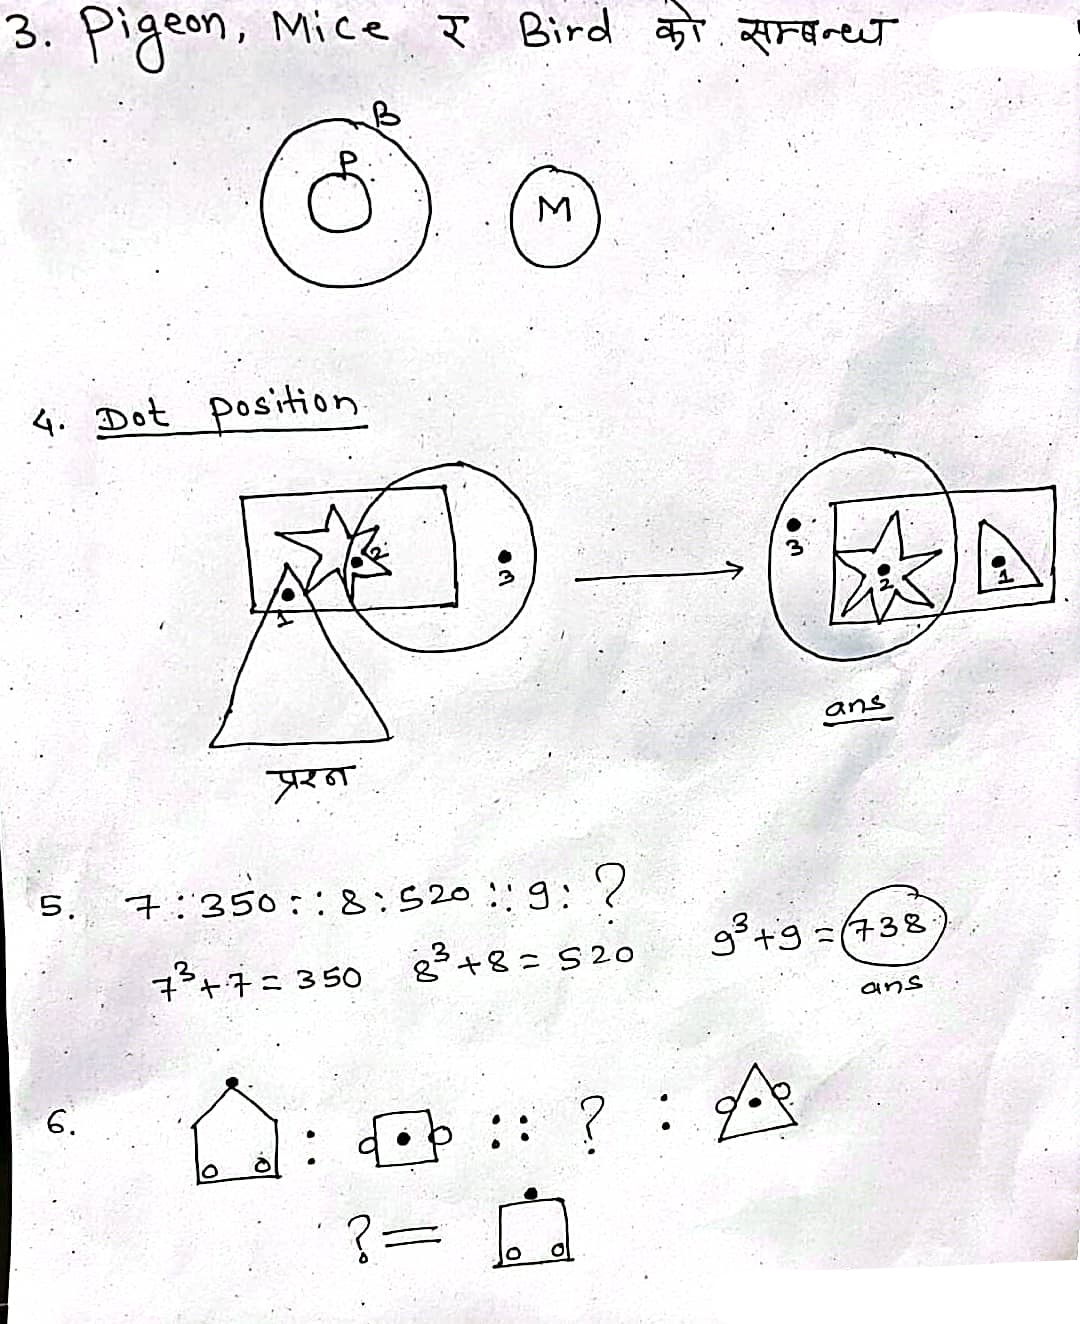 3. Pigeon, Mice र Bird को सम्बन्ध
B
P
M
4. Dot position
2
3
1
3
2
1
ans
प्रश्न
5. 7 : 350 :: 8 : 520 :: 9 : ?
7³+7 = 350 8³+8 = 520 9³+9 = 738
ans
6. : :: ? :
? =